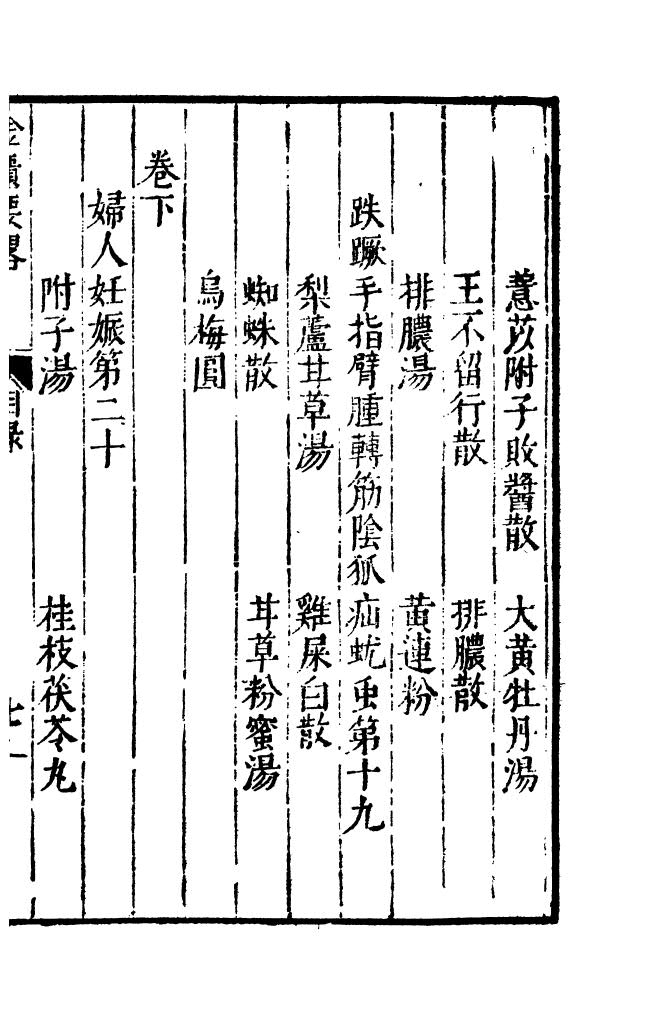 薏苡附子敗醬散　大黄牡丹湯
王不留行散　排膿散
排膿湯　黄連粉
趺蹶手指臂腫轉筋陰狐疝蚘虫第十九
梨蘆甘草湯　雞屎白散
蜘蛛散　甘草粉蜜湯
烏梅圓
卷下
婦人妊娠第二十
附子湯　桂枝茯苓丸
金匱要畧　目录　七